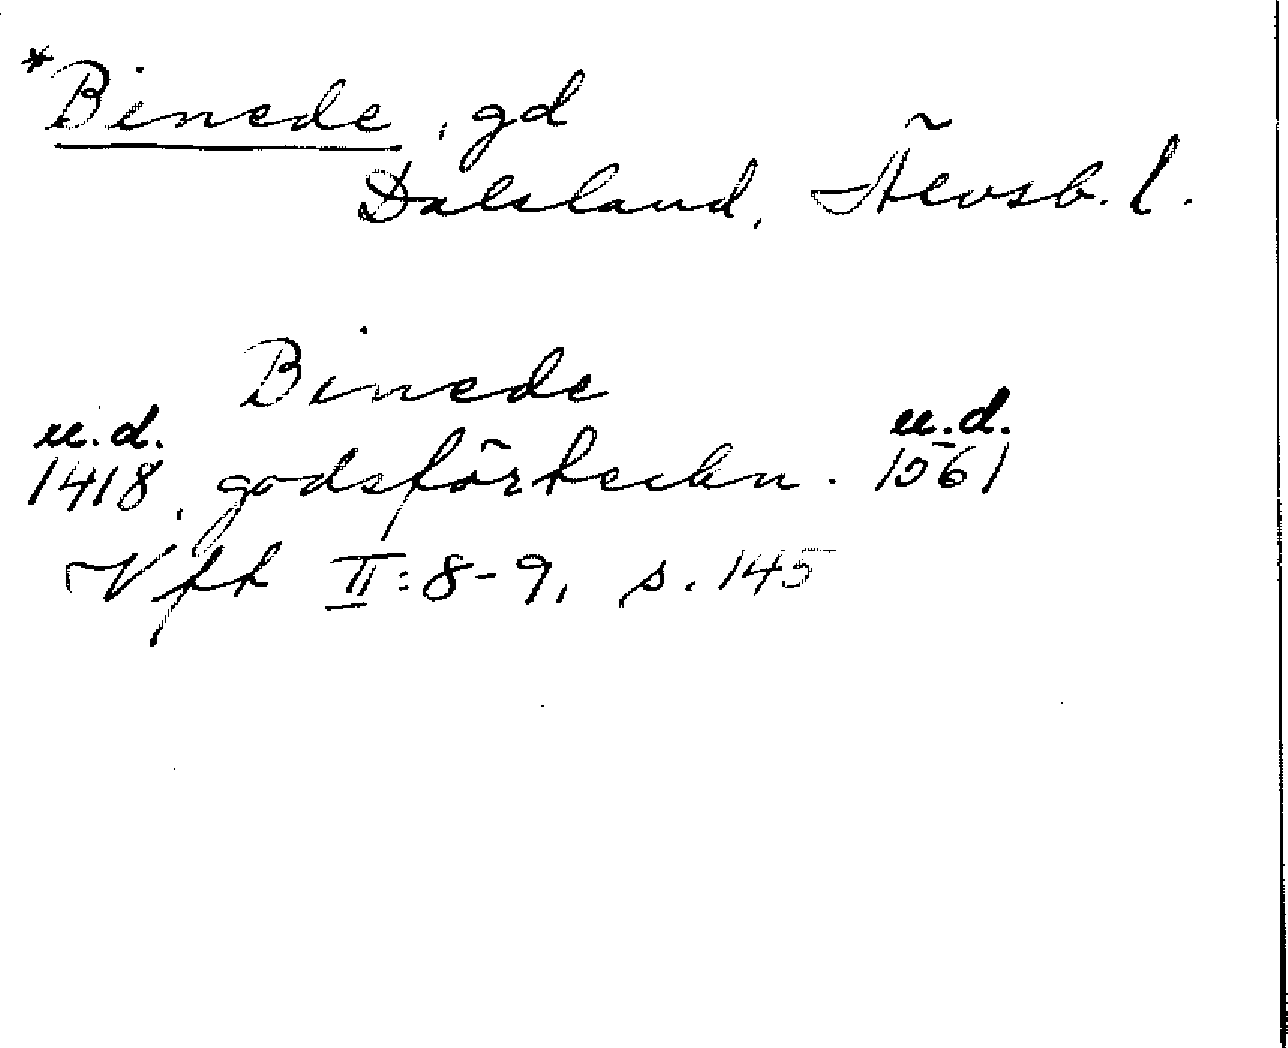 *Binede, gd
Dalsland, Älvsb. l.
Binede
u.d. u.d.
1418, godsförteckn. 1561
Vft II:8-9, s. 145